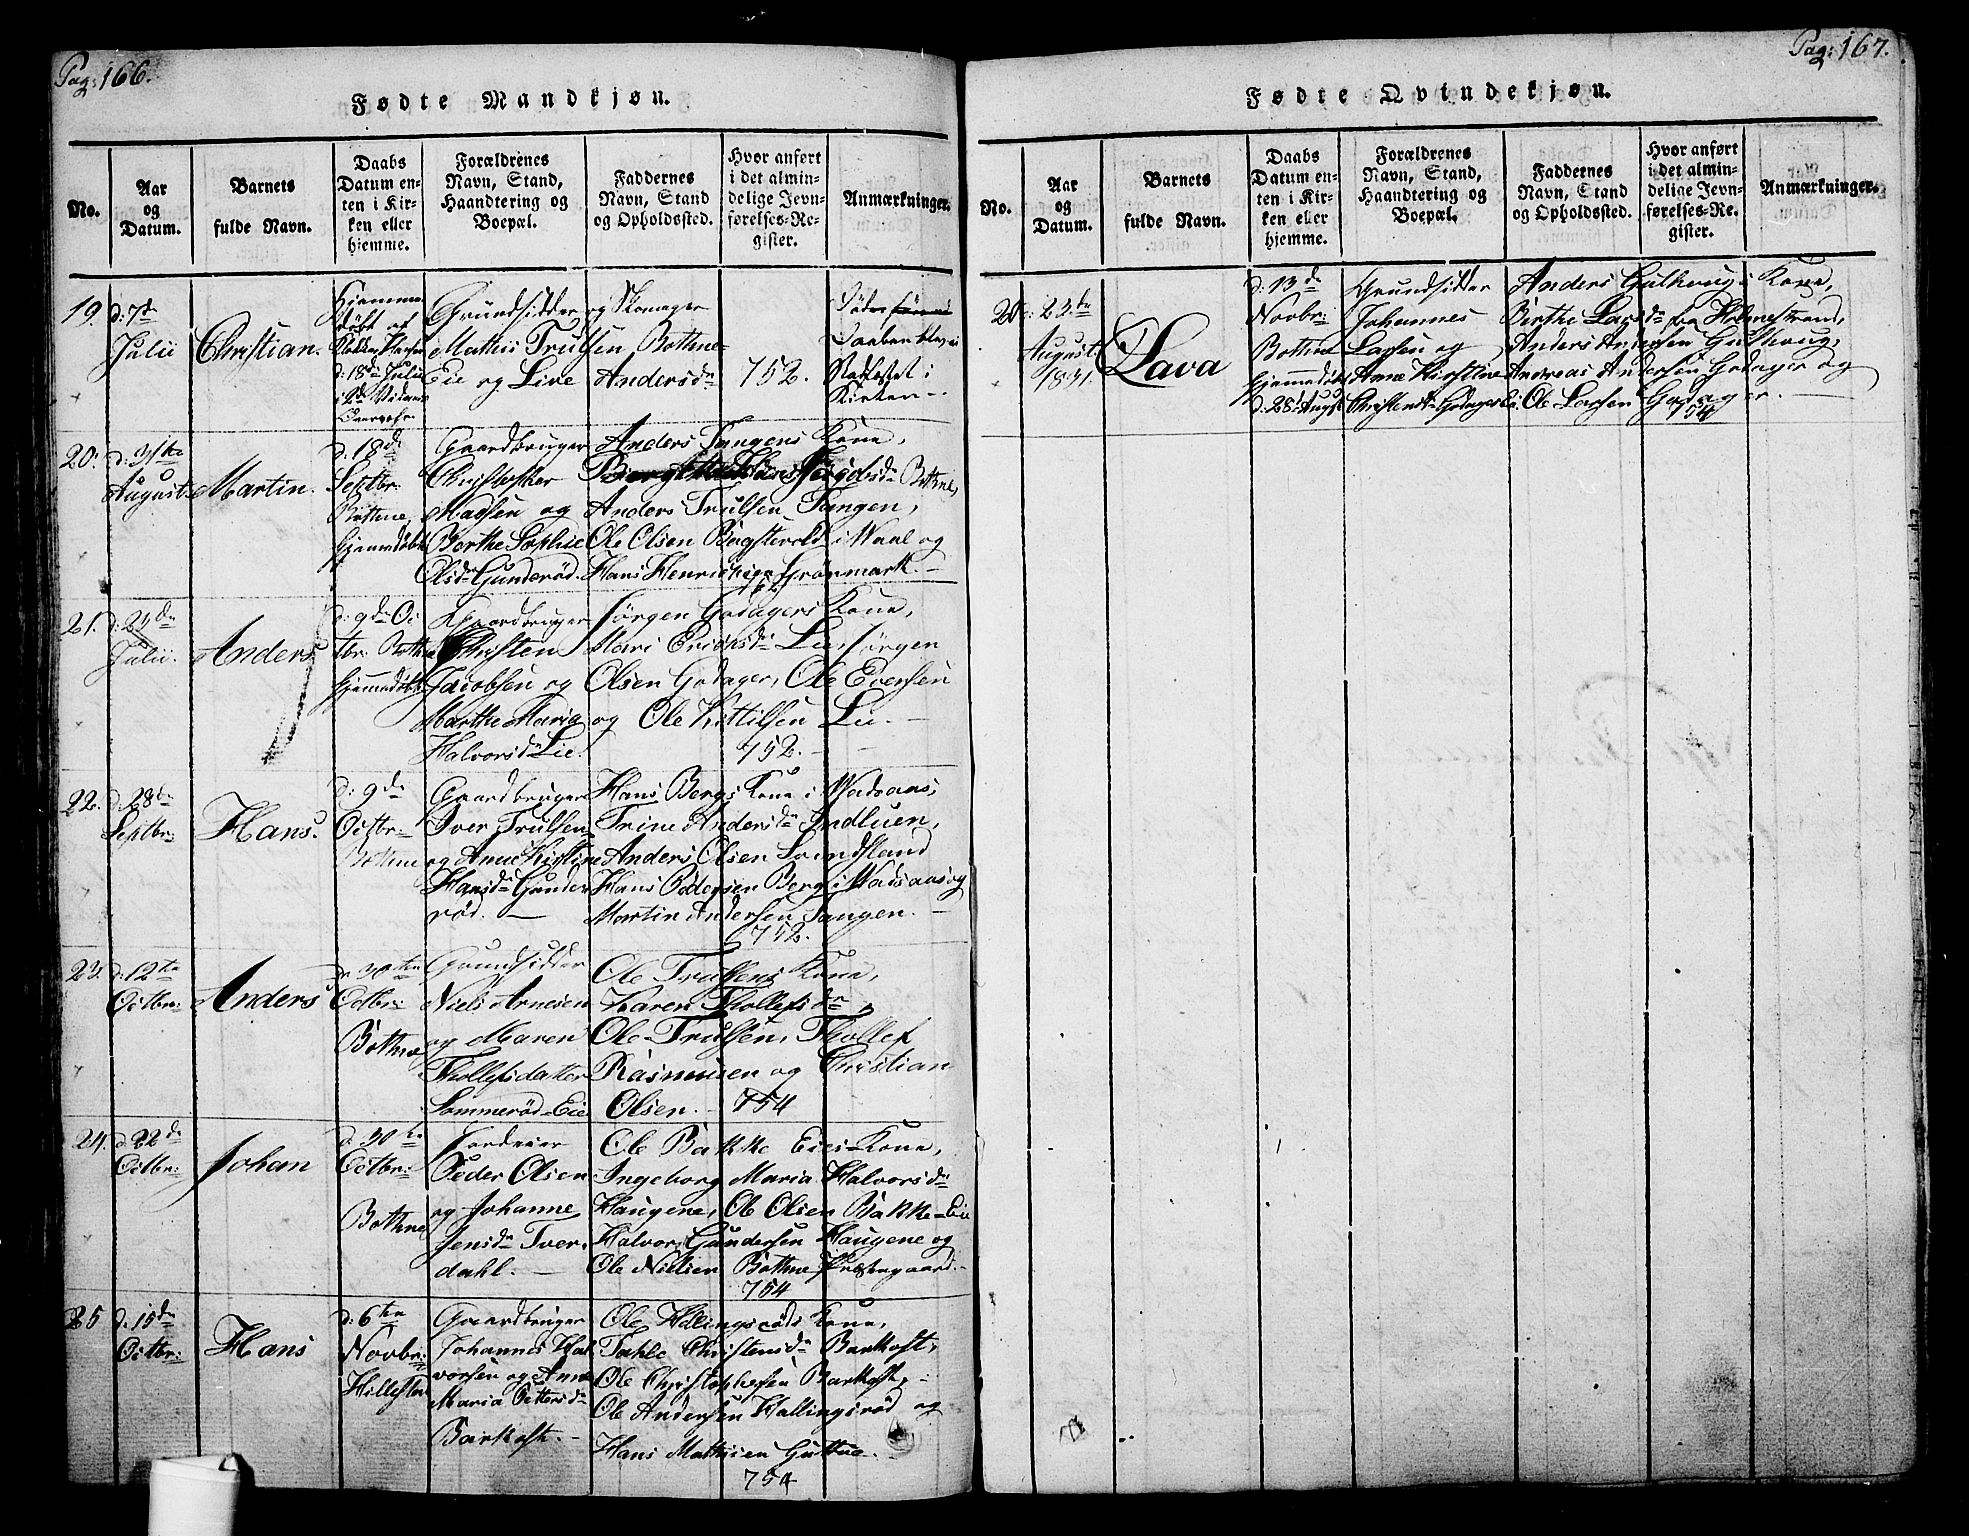 Pag: 166.
Fødte Mandkjøn.
No.
Aar
og
Datum.
Barnets
fulde Navn.
Daabs
Datum en-
ten i Kir-
ken eller
hjemme.
Forældrenes
Navn, Stand,
Haandtering og
Boepæl.
Faddernes
Navn, Stand
og Opholdssted.
Hvor anført
i det almin-
delige Jevn-
førelses-Re-
gister.
Anmærkninger.
19.
d: 7de
Julii
Christian.
Hjemme
døbt af
d: 18de Julii
Grundsidder og Skomager
Mathis Trulsen Bothne-
Eie og Live Andersdr
752.
Kirken.
20.
d: 31te
August
Martin.
d: 18de
Septbr:
Bothne
Hjemmedøbt
Gaardbruger
Christopher
Madsen og
Berthe Sophie
Olsdr Gunderød.
Anders Tangens Kone,
Bothne,
Anders Trulsen Tangen,
Ole Olsen Bøgstvold i Waal og
Hans Henrichsen Grønmark.
752
21.
d: 24de
Julii.
Anders
d: 9de Oc
tbr: Bothne
Hjemmedøbt
Gaardbruger
Christen
Jacobsen og
Marthe Maria
Halvorsdr Lie.
Jørgen Godagers Kone,
Mari Erichsdr Lie, Jørgen
Olsen Godager, Ole Evensen
og Ole Kittilsen Lie.
752.
22.
d: 28de
Septbr:
Hans.
d: 9de
Octbr:
Bothne
Gaardbruger
Iver Trulsen
og Anne Kirstine
Hansdr Gunde-
rød.
Hans Bergs Kone i Wadsaas,
Trine Andersdr Indluen,
Anders Olsen Sundsland
Hans Pedersen Berg i Wadsaas og
Martin Andersen Tangen.
752.
23.
d: 12te
Octbr:
Anders
d: 30te
Octbr:
Bothne
Grundsidder
Niels Arnesen
og Maren
Thollefsdatter
Sommerød-Eie
Ole Trulsens Kone,
Karen Thollefsdr,
Ole Trulsen, Thollef
Rasmusen og Christian
Olsen.
754
24.
d: 22de
Octbr:
Johan
d: 30te
Octbr:
Bothne
Peder Olsen
og Johanne
Jensdr Tver-
dahl.
Ole Bakke Eies Kone,
Ingeborg Maria Halvorsdr
Haugene, Ole Olsen Bakke-Eie
Halvor Gundersen Haugene og
Ole Nielsen Bothne Præstegaard.
754
25
d. 15de
Octbr:
Hans
d: 6te
Novbr:
Hillestad
Gaardbruger
Johannes Hal
vorsen og Anne
Maria Pettersdr
Barkost.
Ole Hallingsrøds Kone,
Tahle Christensdr Barkost,
Ole Christophersen Barkost,
Ole Andersen Hallingsrød og
Hans Mathisen Guttue.
754
Pag: 167.
Fødte Qvindekjøn.
No.
Aar
og
Datum.
Barnets
fulde Navn.
Daabs
Datum en-
ten i Kir-
ken eller
hjemme.
Forældrenes
Navn, Stand,
Haandtering og
Boepæl.
Faddernes
Navn, Stand
og Opholdssted.
Hvor anført
i det almin-
delige Jevn-
førelses-Re-
gister.
Anmærkninger.
20.
d: 23de
August
1831.
Lava
d: 13de
Novbr:
Bothne
Hjemmedøbt
d: 28 Augs
Grundsidder
Johannes
Larsen og
Anne Kirstine
Christensdr Godager Ei.
Anders Gulhaugs Kone,
Birthe Larsdr fra Holmestrand,
Anders Andersen Gulhaug,
Andreas Andersen Godager og
Ole Larsen Godager.
754